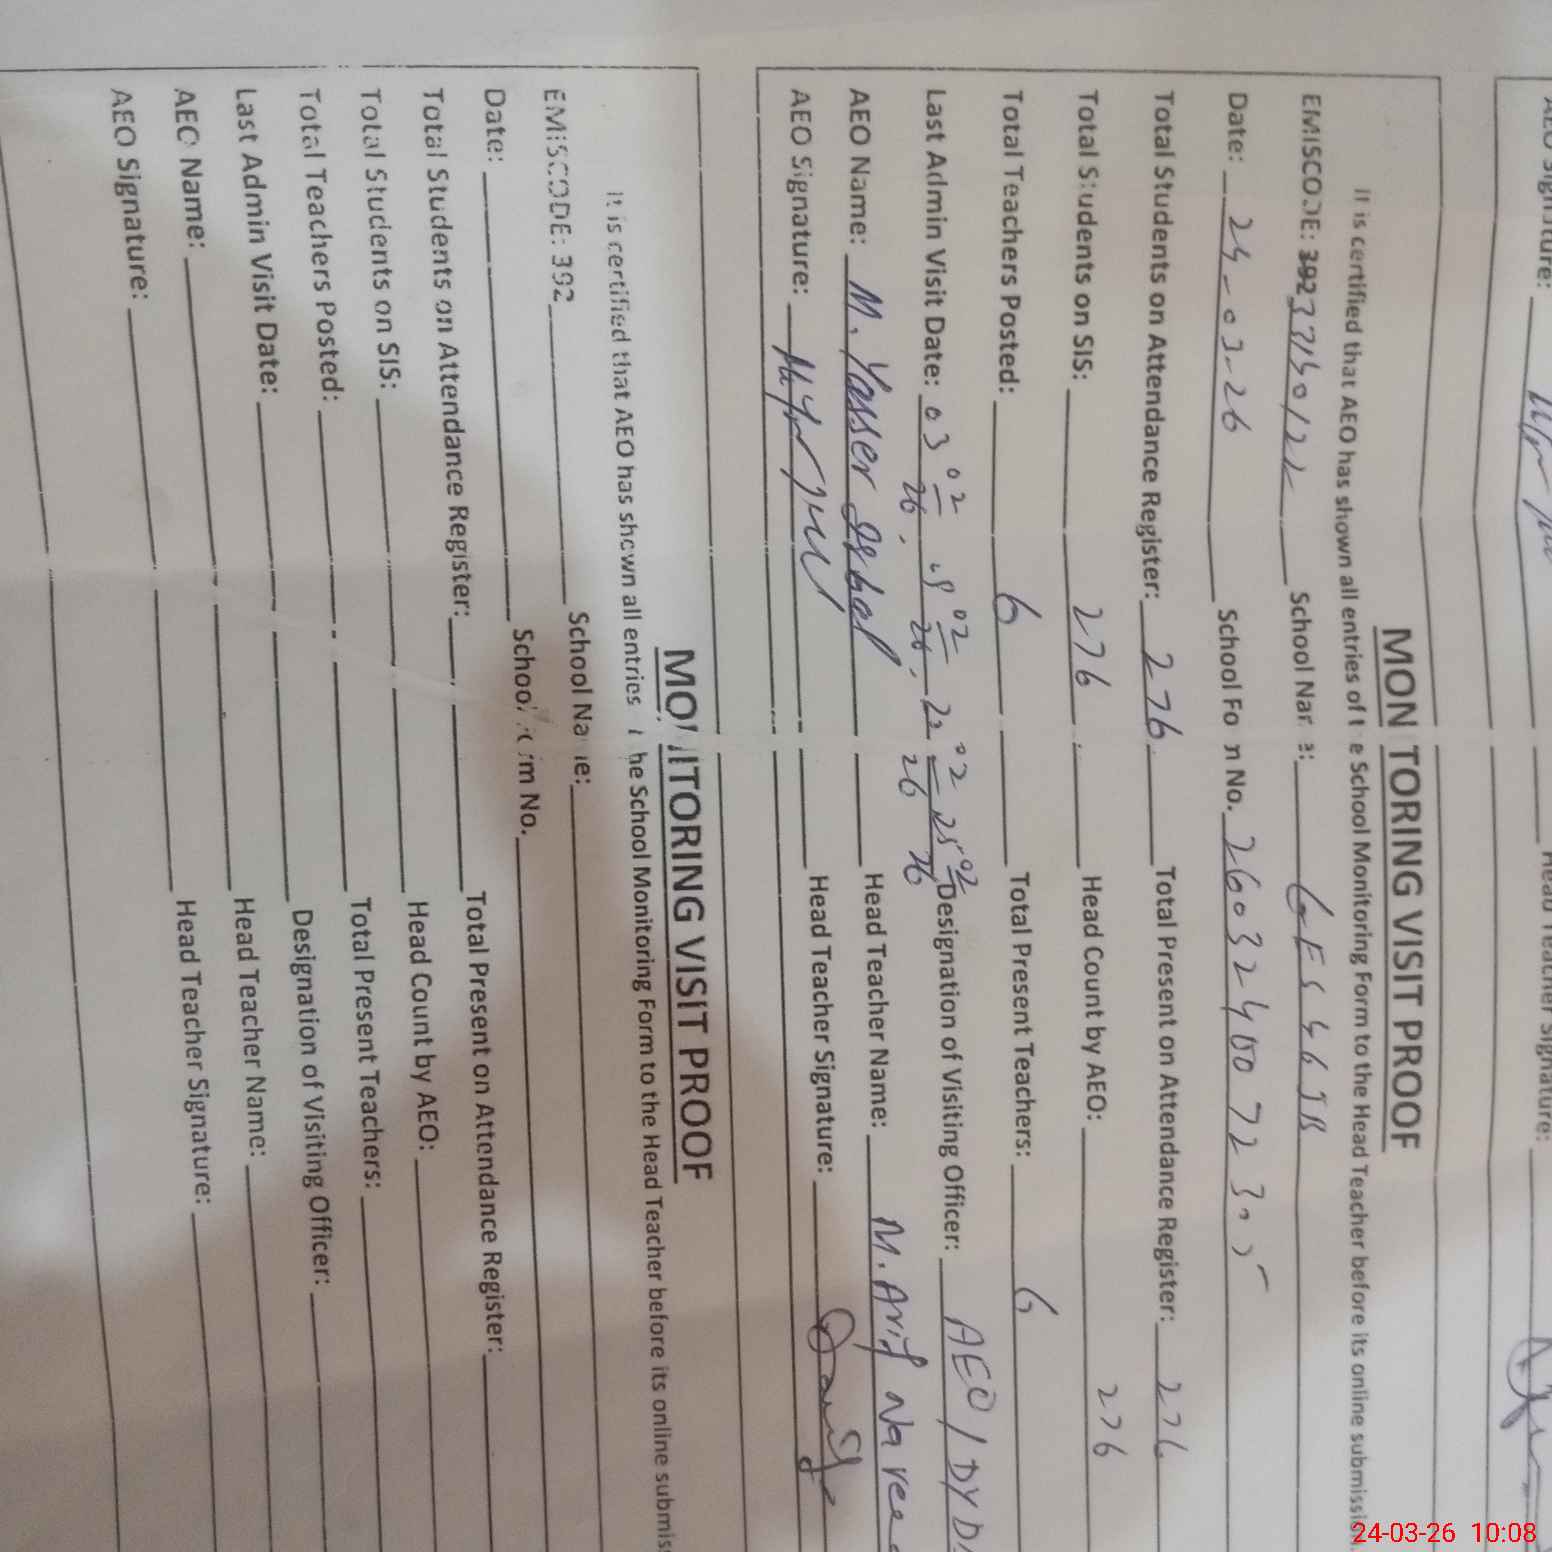 AEO Signature: Head Teacher Signature:
MONITORING VISIT PROOF
It is certified that AEO has shown all entries of the School Monitoring Form to the Head Teacher before its online submission.
EMISCODE: 392 33130122 School Name: GES 46 JB
Date: 24-03-26 School Form No. 2603240072305
Total Students on Attendance Register: 276 Total Present on Attendance Register: 276
Total Students on SIS: 276 Head Count by AEO: 276
Total Teachers Posted: 6 Total Present Teachers: 6
Last Admin Visit Date: 03 02 26, 02 26, 22 02 26 25 02 26 Designation of Visiting Officer: AEO / DYD
AEO Name: M. Yasser Iqbal Head Teacher Name: M. Arif Naree
AEO Signature: Head Teacher Signature:
MONITORING VISIT PROOF
It is certified that AEO has shown all entries the School Monitoring Form to the Head Teacher before its online submis
EMISCODE: 392 School Name:
Date: School Form No.
Total Students on Attendance Register: Total Present on Attendance Register:
Total Students on SIS: Head Count by AEO:
Total Teachers Posted: Total Present Teachers:
Last Admin Visit Date: Designation of Visiting Officer:
AEO Name: Head Teacher Name:
AEO Signature: Head Teacher Signature:
24-03-26 10:08